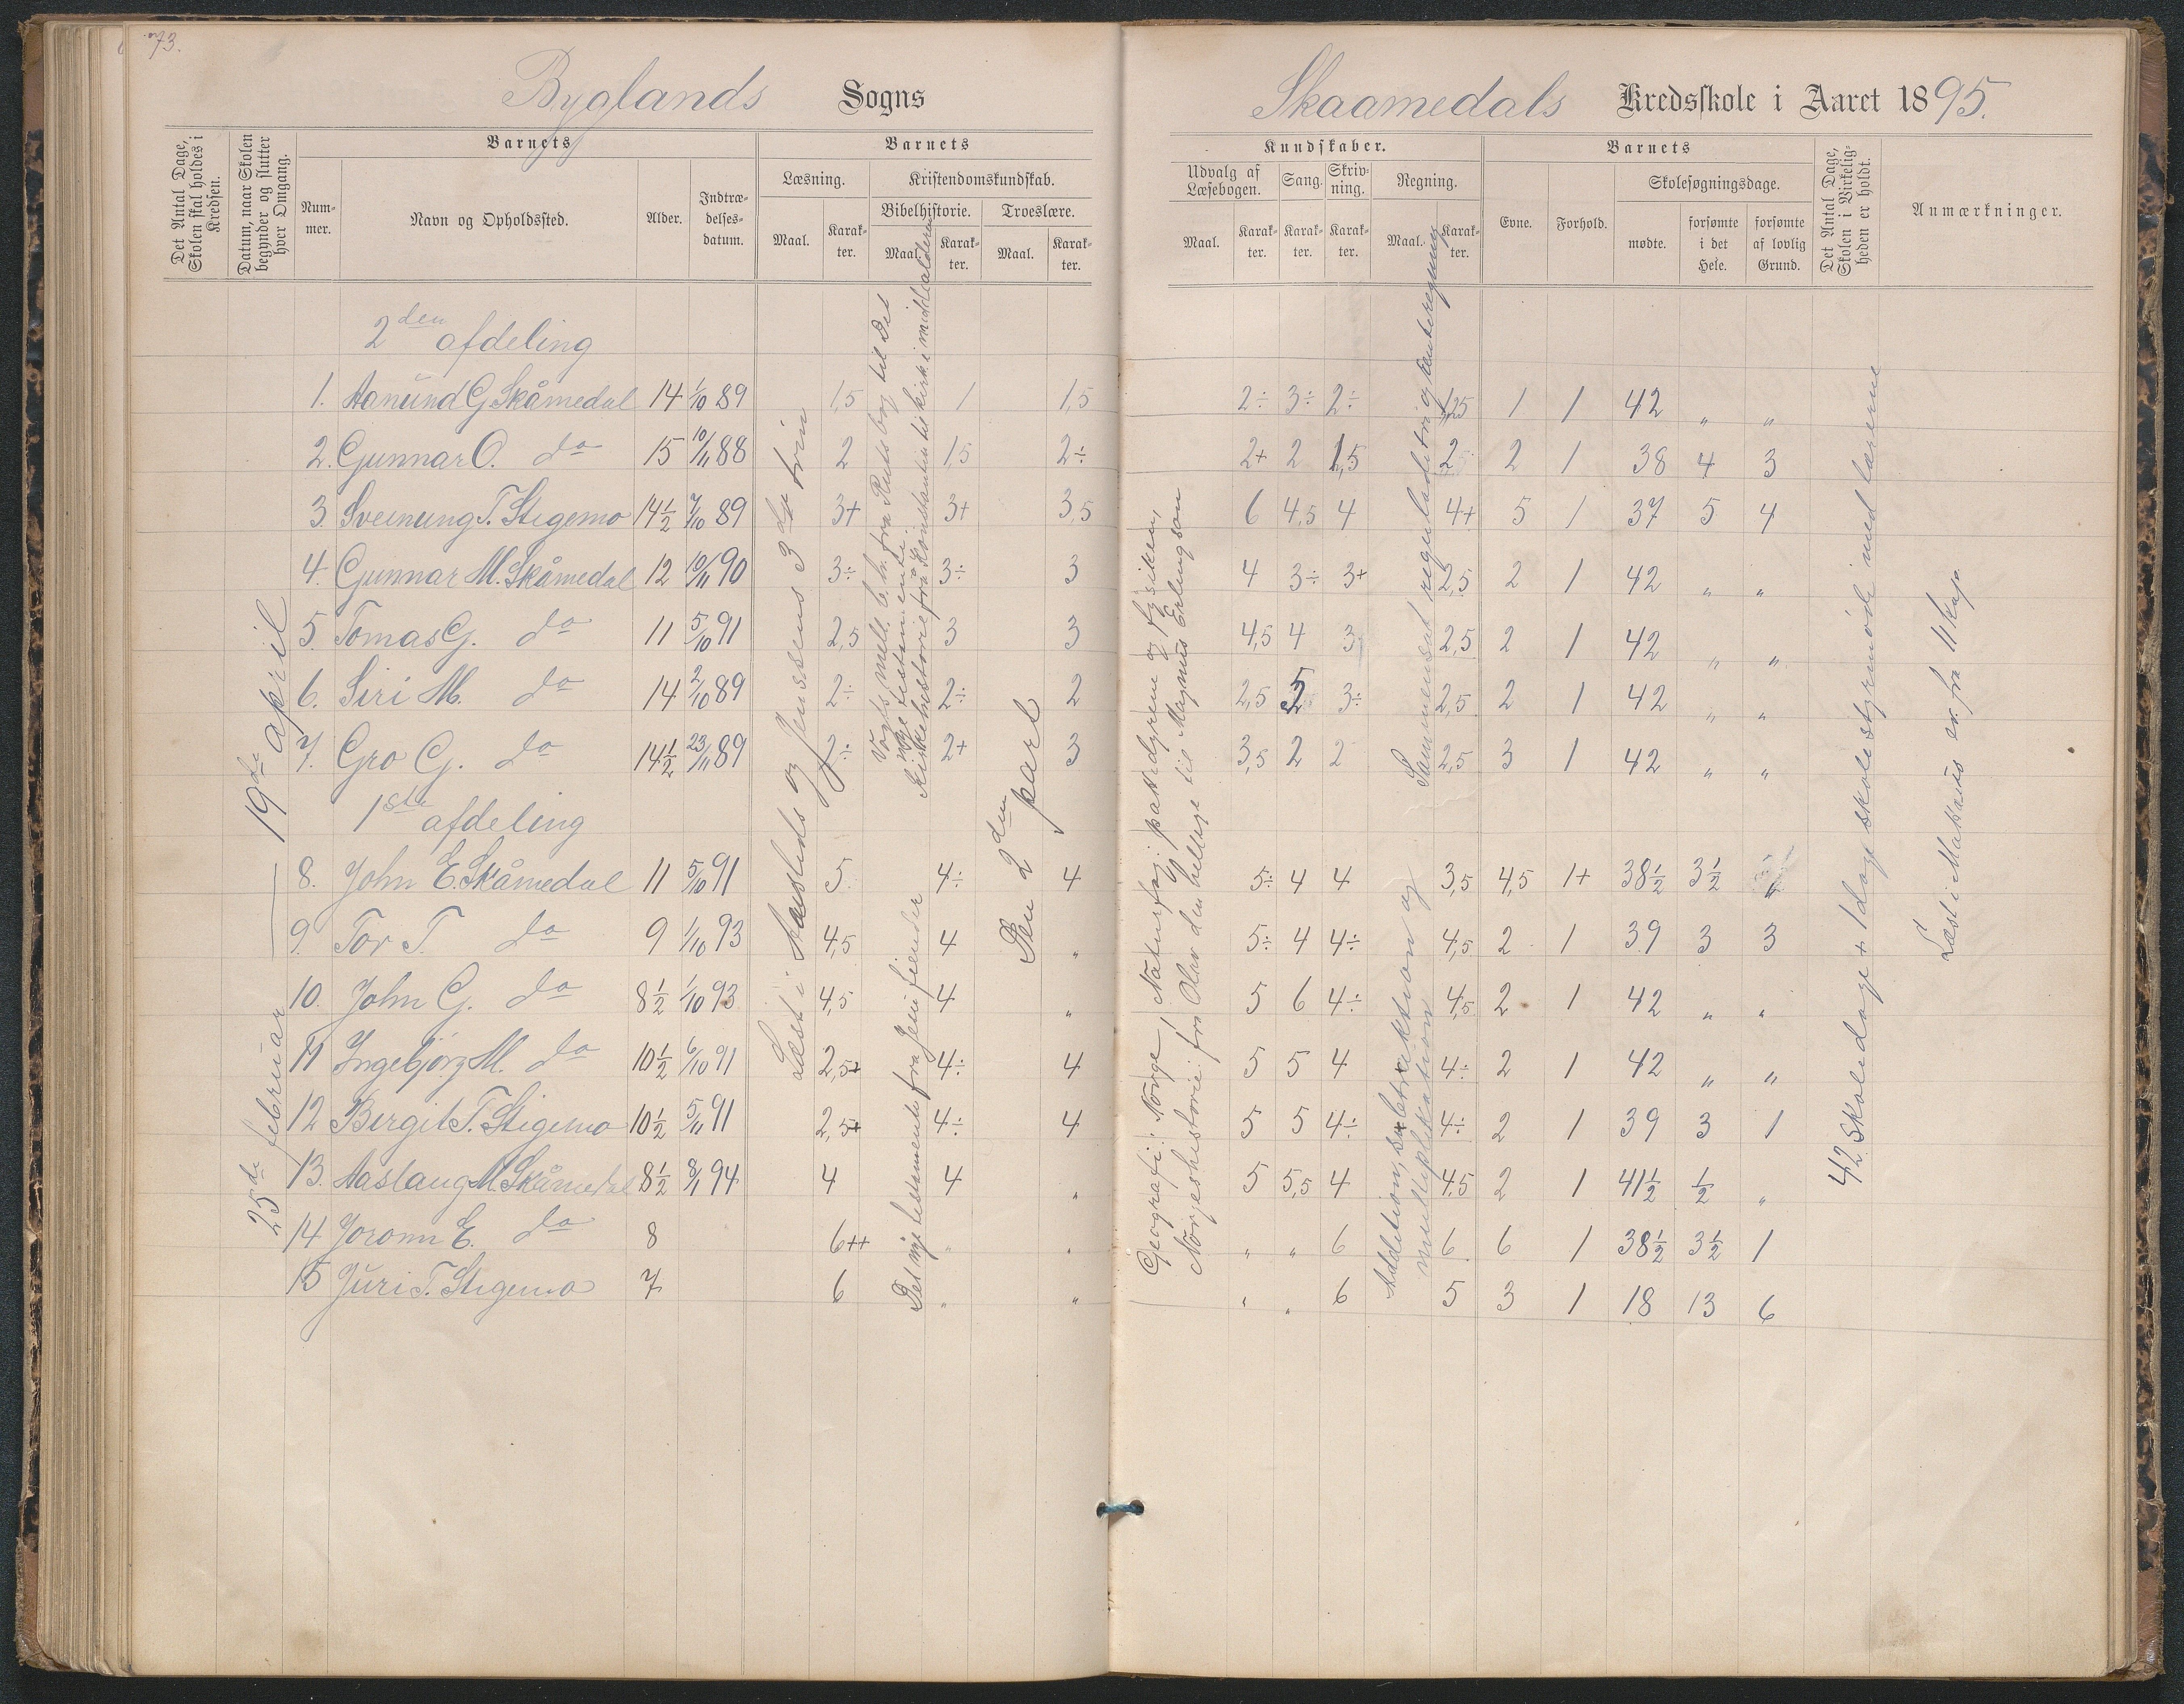 73.
Byglands Sogns
Skaamedals Kredsskole i Aaret 1895.
Det Antal Dage, Skolen skal holdes i Kredsen.
Datum, naar Skolen begynder og slutter hver Omgang.
Barnets
Num-mer.
Navn og Opholdssted.
Alder.
Indtræ-delses-datum.
Barnets
Læsning.
Maal.
Karak-ter.
Kristendomskundskab.
Bibelhistorie.
Maal.
Karak-ter.
Troeslære.
Maal.
Karak-ter.
Kundskaber.
Udvalg af Læsebogen.
Maal.
Karak-ter.
Sang.
Karak-ter.
Skriv-ning.
Karak-ter.
Regning.
Maal.
Karak-ter.
Barnets
Evne.
Forhold.
Skolesøgningsdage.
mødte.
forsømte i det Hele.
forsømte af lovlig Grund.
Det Antal Dage, Skolen i Virkelig-heden er holdt.
Anmærkninger.
2den afdeling
1. Aanund G. Skåmedal 14 1/10 89 1,5 1 1,5 2÷ 3÷ 2÷ 1,25 1 1 42 " "
2. Gunnar O. do 15 10/11 88 2 1,5 2÷ 2+ 2 1,5 2 2 1 38 4 3
3. Sveinung T. Stigemo 14½ 7/10 89 3+ 3+ 3,5 6 4,5 4 4+ 5 1 37 5 4
4. Gunnar M. Skåmedal 12 10/11 90 3÷ 3÷ 3 4 3÷ 3+ 2,5 2 1 42 " "
5. Tomas G. do 11 5/10 91 2,5 3 3 4,5 4 3 2,5 2 1 42 " "
6. Siri M. do 14 2/10 89 2÷ 2÷ 2 2,5 2 3÷ 2,5 2 1 42 " "
7. Gro G. do 14½ 23/11 89 2÷ 2+ 3 3,5 2 2 2,5 3 1 42 " "
1ste afdeling
8. John E. Skåmedal 11 5/10 91 5 4÷ 4 5÷ 4 4 3,5 4,5 1+ 38½ 3½
9. Tor T. do 9 1/10 93 4,5 4 " 5÷ 4 4÷ 4,5 2 1 39 3 3
10. John G. do 8½ 1/10 93 4,5 4 " 5 6 4÷ 4,5 2 1 42 " "
11 Ingebjørg M. do 10½ 6/10 91 2,5+ 4÷ 4 5 5 4 4÷ 2 1 42 " "
12 Bergit T. Stigemo 10½ 5/11 91 2,5+ 4÷ 4 5 5 4÷ 4÷ 2 1 39 3 1
13. Aaslaug M. Skåmedal 8½ 8/1 94 4 4 " 5 5,5 4 4,5 2 1 41½ ½ "
14 Joronn E. do 8 6++ " " " " 6 6 6 1 38½ 3½ 1
15 Juri T. Stigemo 7 6 " " " " 6 5 3 1 18 13 6
25de februar — 19de april
Læst i Austlids og Jenssens 3die trin
Vogts mell. b. h. fra Ruts bog til Det
nye testamente.
Kirkehistorie fra Konstantin til kirk. i middelalderen
Det nye testamente fra Jesu fiender
Den 2den part
Geografi: Norge, Naturfag: pattedyrene og fysiken,
Norgeshistorie: fra Olav den hellige til Magnus Erlingson
Sammensat reguladetri og renteregning
Addition, subtraktion og
multiplikation
42 skoledage + 1 dags skolestyremøde med lærerne
Læst i Mattæus ev. fra 11 kap.